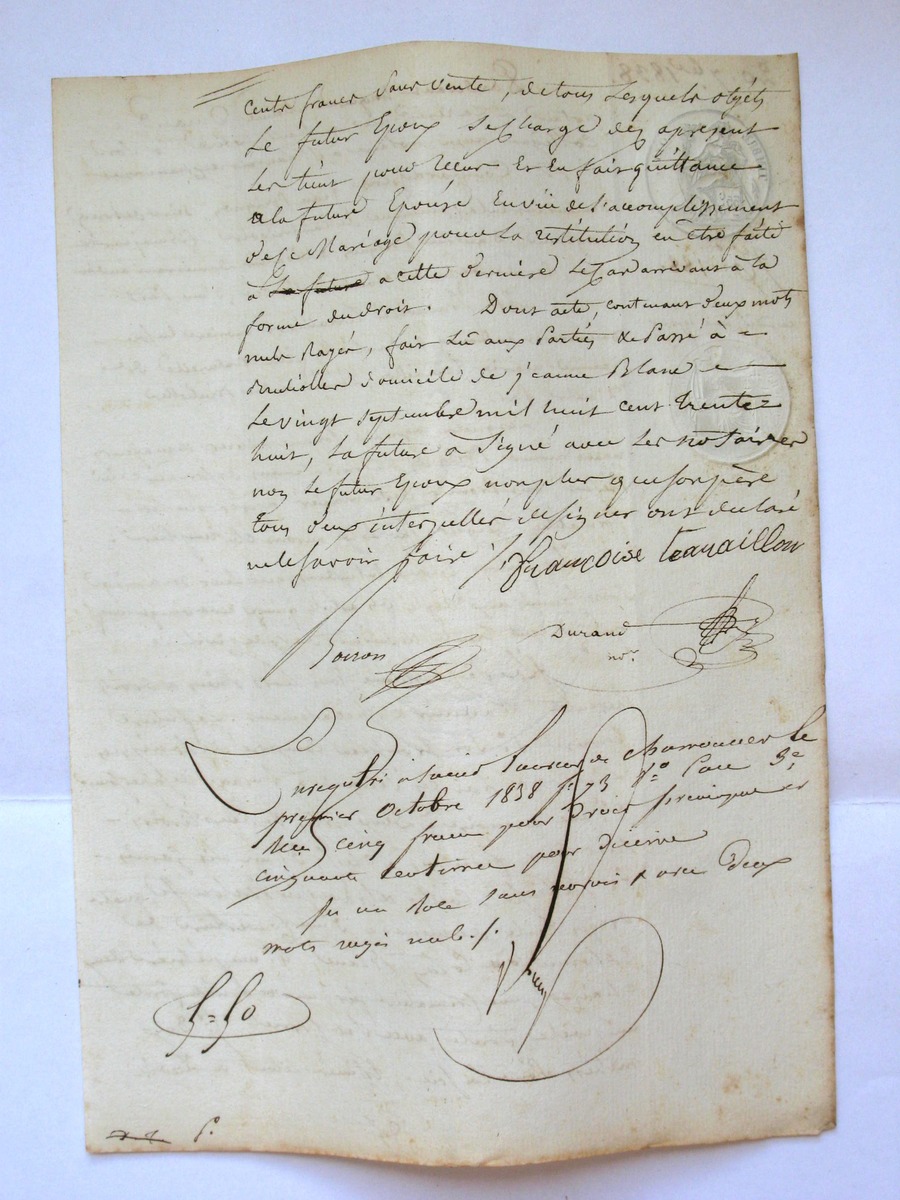 cents francs sans vente, de tous lesquels objets
Le futur Epoux se charge dez apresent
Les tient pour recus Et En fait quittance
a la future Epouse En vüe de l'accomplissement
de ce Mariage pour La restitution en être faite
à La future a cette derniere le Cas arrivant à la
forme du droit. Dont acte, contenant deux mots
nuls Rayés, fait Lû aux Parties & Passé à =
domicile de jeanne Blanc
Le vingt septembre mil huit cent trente=
huit, La future à Signé avec Les notaires
non Le futur Epoux non plus que son père
tous deux interpellés de signer ont declaré
ne le savoir faire /.
françoise travaillon
Durand
nore.
Boiron
Enregistré à Saint de Chamousset le
premier octobre 1838 fo 73 Vo Case 3e
Reçu cinq francs pour Droit principal et
cinquante Centimes pour Décime
sur un Role sans renvois & avec Deux
mots rayés nuls ./.
5=50